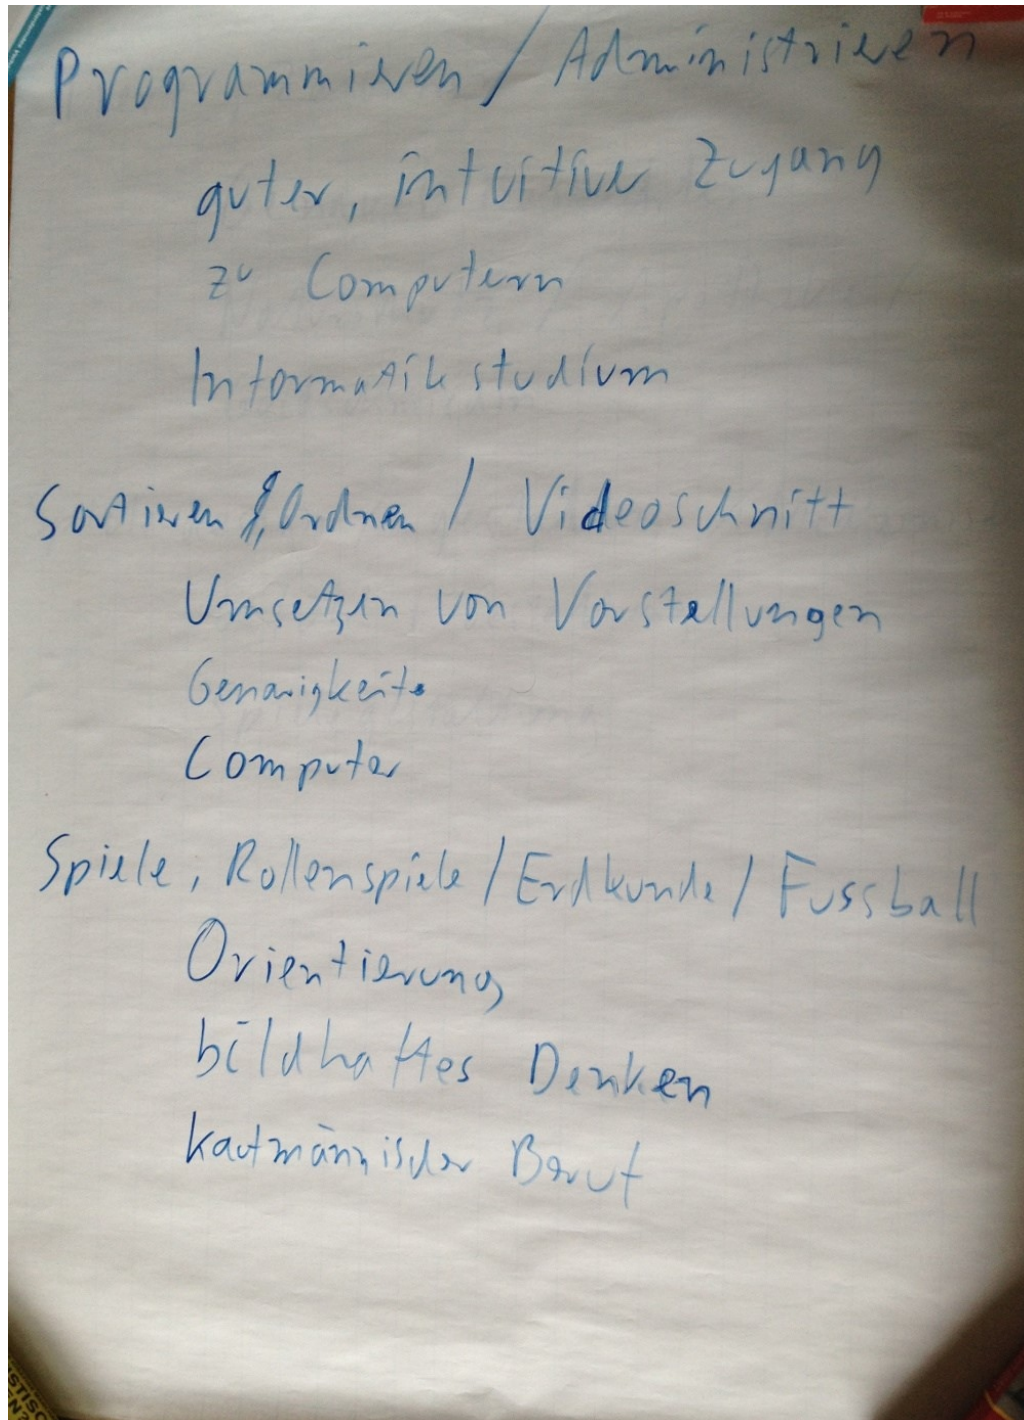 Programmieren / Administrieren
guter, intuitiver Zugang
zu Computern
Informatikstudium
Sortieren, Ordnen / Videoschnitt
Umsetzen von Vorstellungen
Genauigkeit
Computer
Spiele, Rollenspiele / Erdkunde / Fussball
Orientierung
bildhaftes Denken
kaufmännischer Beruf